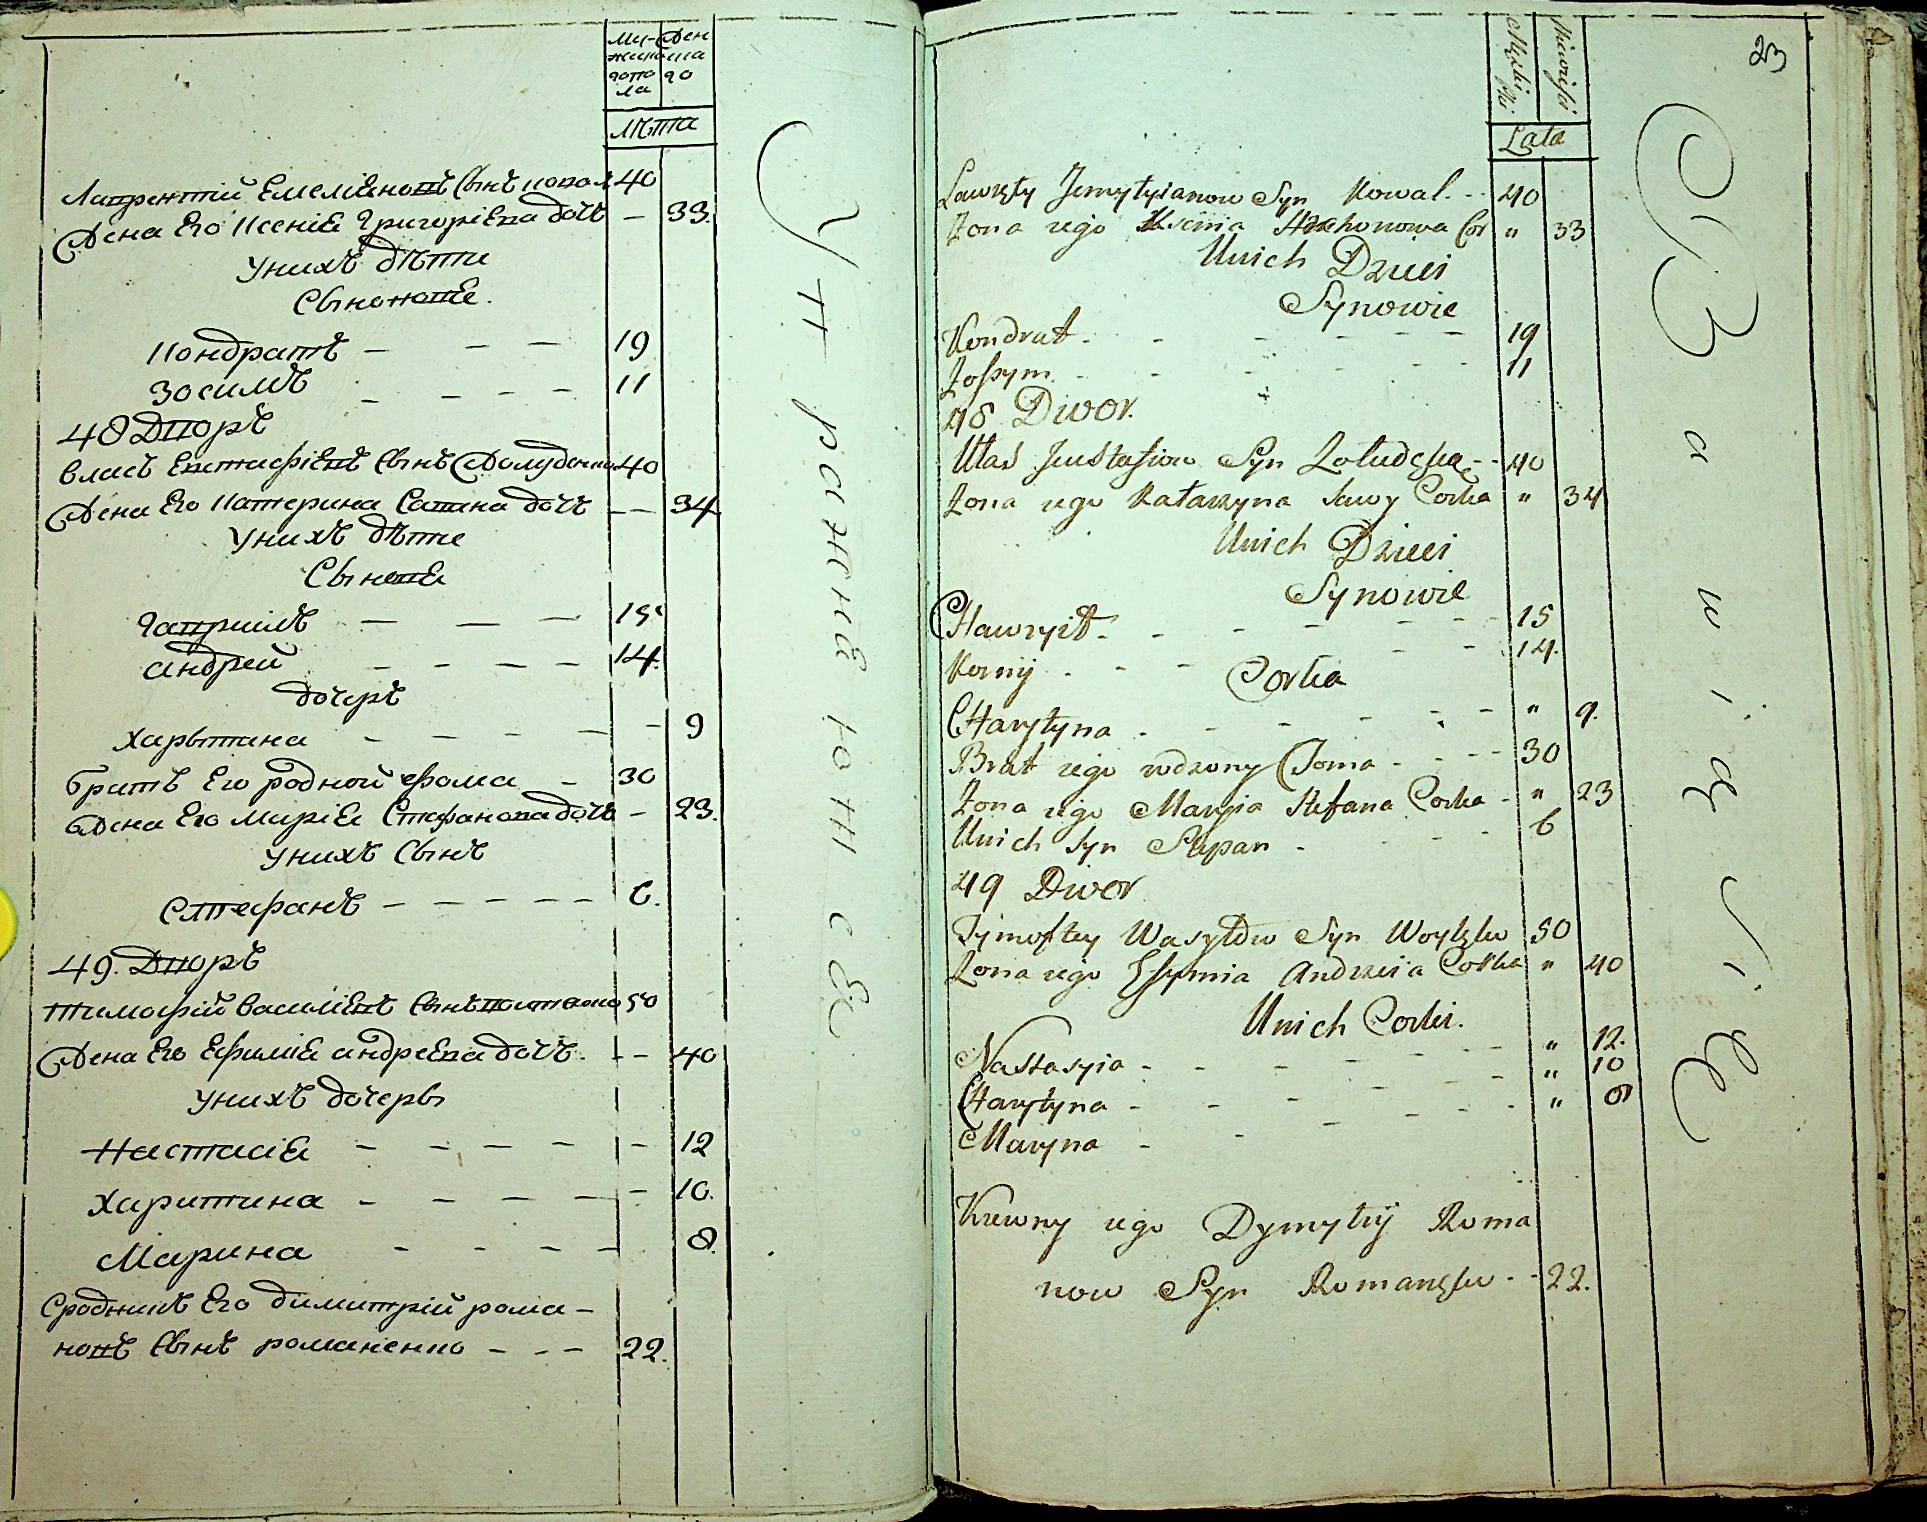 Му-
жеска
пола
Жен
ска
го
Лѣта
Лаврентий Емелiяновъ Сынъ ковал 40
Жена Его Ксенiя Григорiева дочь — 33.
У нихъ дѣти
Сыновья.
Кондратъ — — — 19
Зосимъ — — — — 11
48 Дворъ
Власъ Евстафiевъ Сынъ Жолудчи 40
Жена Его Катерина Савина дочь — — 34
У нихъ дѣти
Сыновя
Гаврiилъ — — — 15
Андрей — — — — 14.
дочерь
Харытина — — — — — 9
братъ Его родной Фома — 30
Жена Его Марiя Стефанова дочь — 23.
у нихъ Сынъ
Стефанъ — — — — — 6.
49. Дворъ
Тимофей Васильевъ Сынъ 50
Жена Его Ефимiя андреева дочь. — — 40
У нихъ дочеры
Настасiя — — — — — 12
Харитина — — — — — 10.
Марина — — — — 8.
Сродникъ Его димитрiй рома-
новъ Сынъ романенко — — — 22.
Уп ражнению не
23
Męzki
Lata
Ławręty Jemytyianow Syn Kowal. - - 40
Żona iego Ksenia Cor " 33
U nich Dzieci
Synowie
Kondrat - - - - - 19
Zossym - - - - - 11
48 Dwor.
Ułas Justafiow Syn Zołudcha - - 40
Żona iego Katarzyna Sawy Corka " 34
U nich Dzieci
Synowie
Hawryił - - - - - 15
- - - 14.
Corka
Harytyna - - - - - " 9.
Brat iego rodzony Foma - - - 30
Żona iego Maryia Stefana Corka - " 23
U nich Syn Stepan - - - 6
49 Dwor
Tymoftey Wasylow Syn 50
Żona iego Efymia Andrzeia Corka " 40
U nich Corki.
Nastasyia - - - - - " 12.
Harytyna - - - - - " 10
Maryna - - - - - " 8
Krewny iego Dymytry Roma
now Syn Romanęko - - 22.